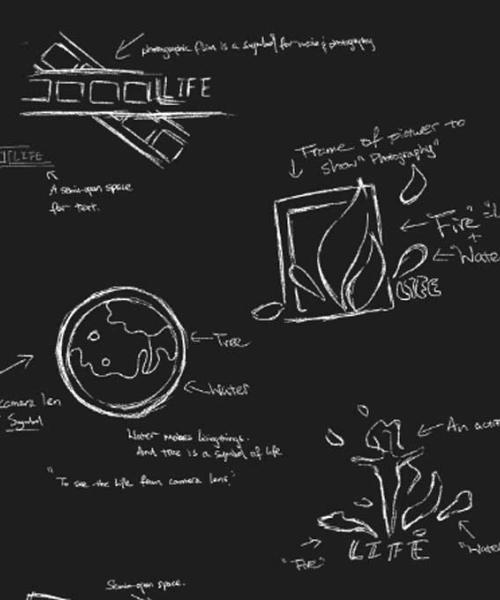 photographic film is a symbol for movie & photography
LIFE
LIFE
A semi-open space
for text.
Frame of picture to
show "Photography"
"Fire"
+
Wate
LIFE
Tree
Water
camera len
Symbol
Water makes livingthings.
And tree is a symbol of life
"To see the life from camera lens."
An act
LIFE
"Fire"
"Wate
Semi-open space.